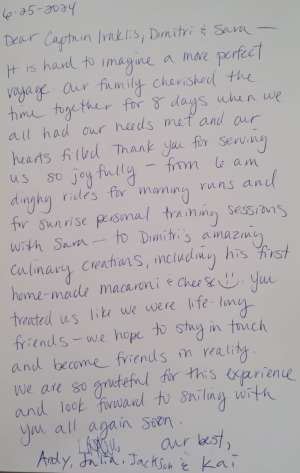 6-25-2024
Dear Captain Iraklis, Dimitri & Sara —
It is hard to imagine a more perfect
voyage. Our family cherished the
time together for 8 days when we
all had our needs met and our
hearts filled. Thank you for serving
us so joyfully — from 6 am
dinghy rides for morning runs and
for sunrise personal training sessions
with Sara — to Dimitri's amazing
culinary creations, including his first
home-made macaroni & cheese. You
treated us like we were life-long
friends — we hope to stay in touch
and become friends in reality.
We are so grateful for this experience
and look forward to sailing with
you all again soon.
Our best,
Andy, Julia, Jackson & Kai